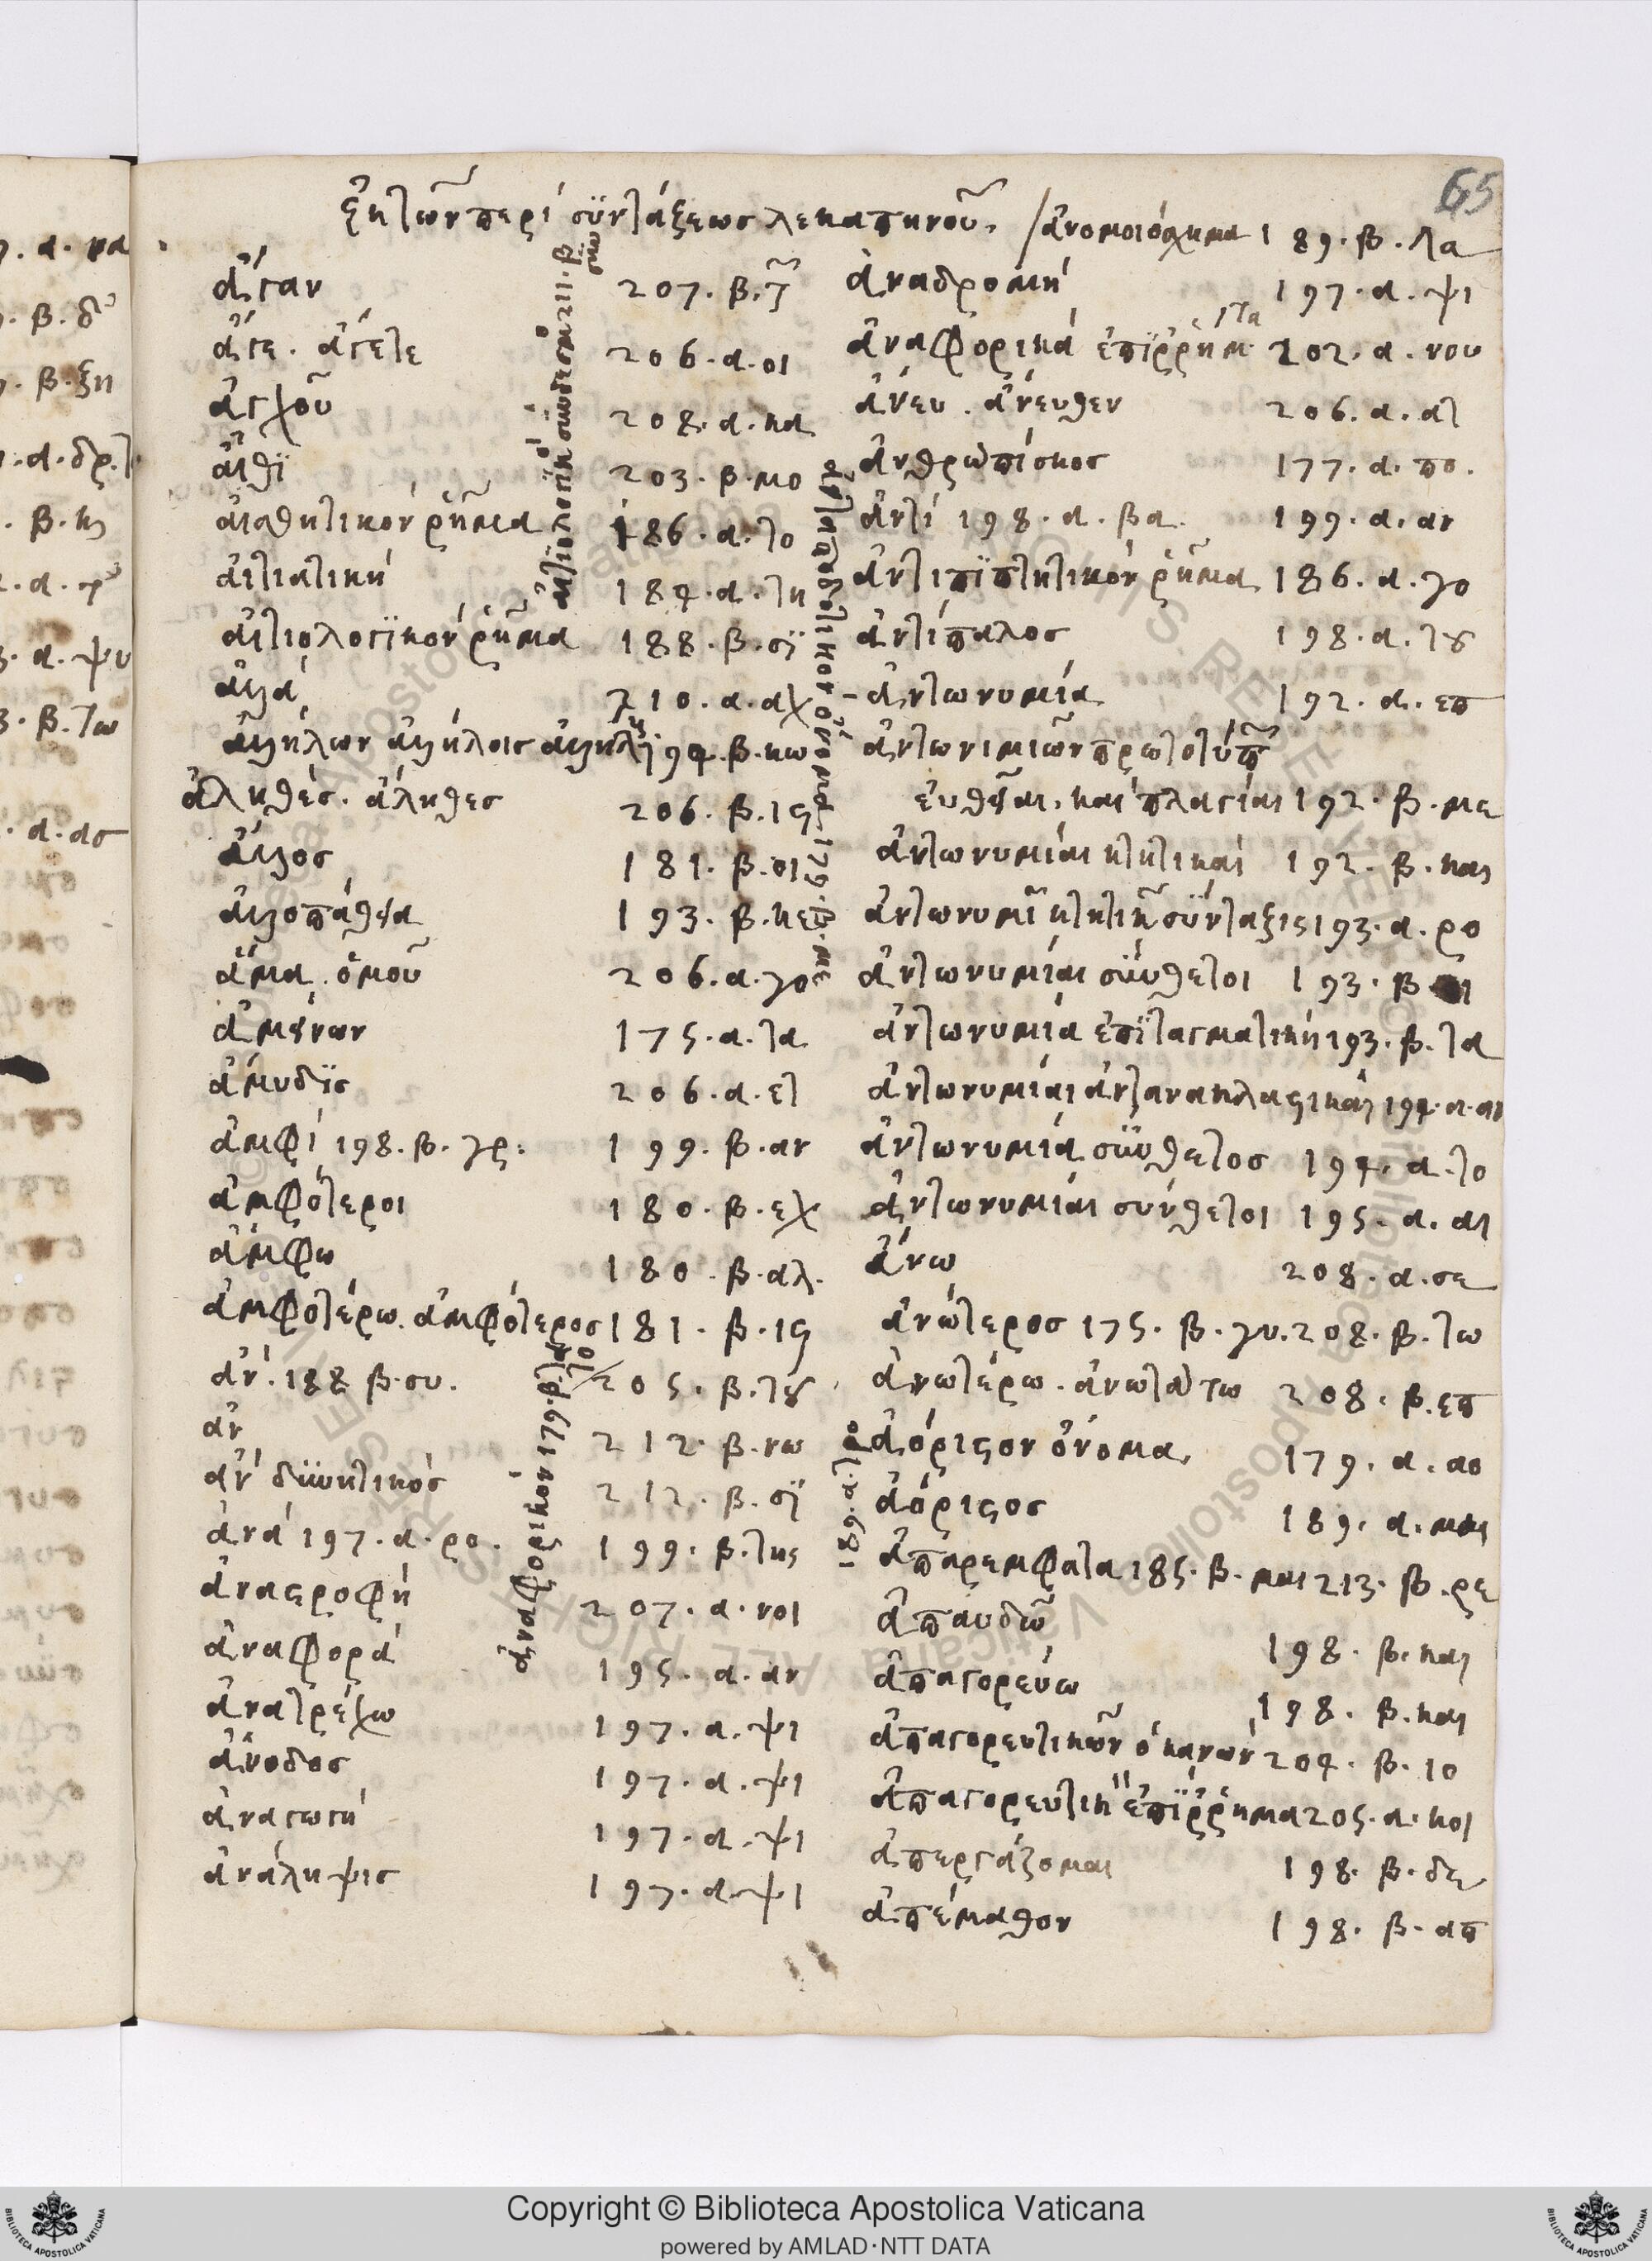 65
ἐκ τῶν περὶ συντάξεως λεκαπηνοῦ.
ἄγαν 207. β. τ
ἄγε. ἄγετε 206. α. οι
ἀγχοῦ 208. α. κα
αἴθι 203. β. μο
αἰσθητικὸν ῥῆμα 186. α. το
αἰτιατική 184. α. τη
αἰτιολογικὸν ῥῆμα 188. β. σϊ
ἀλλά 210. α. αχ
ἀλλήλων ἀλλήλοις 194. β. κω
ἀληθές. ἄληθες 206. β. ις
ἄλλος 181. β. οι
ἀλλοπάθεια 193. β. κε
ἅμα. ὁμοῦ 206. α. γο
ἀμείνων 175. α. τα
ἄμυδϊς 206. α. ετ
ἀμφί 198. β. γρ. 199. β. αν
ἀμφότεροι 180. β. εχ
ἄμφω 180. β. αλ.
ἀμφοτέρω. ἀμφότερος 181. β. ις
ἄν. 188 β. συ. 205. β. του
ἄν 212. β. νω
ἄν δυνητικός 212. β. σϊ
ἀνά 197. α. ρο. 199. β. της
ἀναστροφή 207. α. νοι
ἀναφορά 195. α. αν
ἀνατρέχω 197. α. ψι
ἄνοδος 197. α. ψι
ἀναγωγή 197. α. ψι
ἀνάληψις 197. α. ψι
αἰτιολογικοὶ σύνδεσμοι 211. β
ἀναφορικόν 179. β. το
ἀνταποδοτικὸν ὄνομα 179. β. με
ἀνομοιόσχημα 189. β. λα
ἀναδρομή 197. α. ψι
ἀναφορικά ἐπϊρρήματα 202. α. νου
ἄνευ. ἄνευθεν 206. α. ατ
ἀνθρωπίσκος 177. α. πο.
ἀντί 198. α. βα. 199. α. αν
ἀντιπϊπτητικὸν ῥῆμα 186. α. γο
ἀντίπαλος 198. α. του
ἀντωνυμία 192. α. επ
ἀντωνιμιῶν πρωτοτύπ
εὐθεῖαι. καὶ πλαγίαι 192. β. με
ἀντωνυμίαι κτητικαί 192. β. και
ἀντωνυμι κτητικ σύνταξις 193. α. ρο
ἀντωνυμίαι σύνθετοι 193. β.
ἀντωνυμία ἐπϊταγματική 193. β. τα
ἀντωνυμίαι ἀντανακλαστικαί 194. α. αι
ἀντωνυμία σύνθετος 194. α. το
ἀντωνυμίαι σύνθετοι 195. α. αι
ἄνω 208. α. σε
ἀνώτερος 175. β. γυ. 208. β. τω
ἀνωτέρω. ἀνωτάτω 208. β. επ
ἀόριστον ὄνομα 179. α. αο
ἀόριστος 189. α. μαι
189. α. το
ἀπαρέμφατα 185. β. μαι 213. β. ρε
ἀπαυδῶ 198. β. και
ἀπαγορεύω 198. β. και
ἀπαγορευτικῶν ὁ κανών 204. β. ιο
ἀπαγορευτικ ἐπϊρρημα 205. α. κοι
ἀπεργάζομαι 198. β. δε
ἀπέμαθον 198. β. απ
Copyright © Biblioteca Apostolica Vaticana
powered by AMLAD·NTT DATA